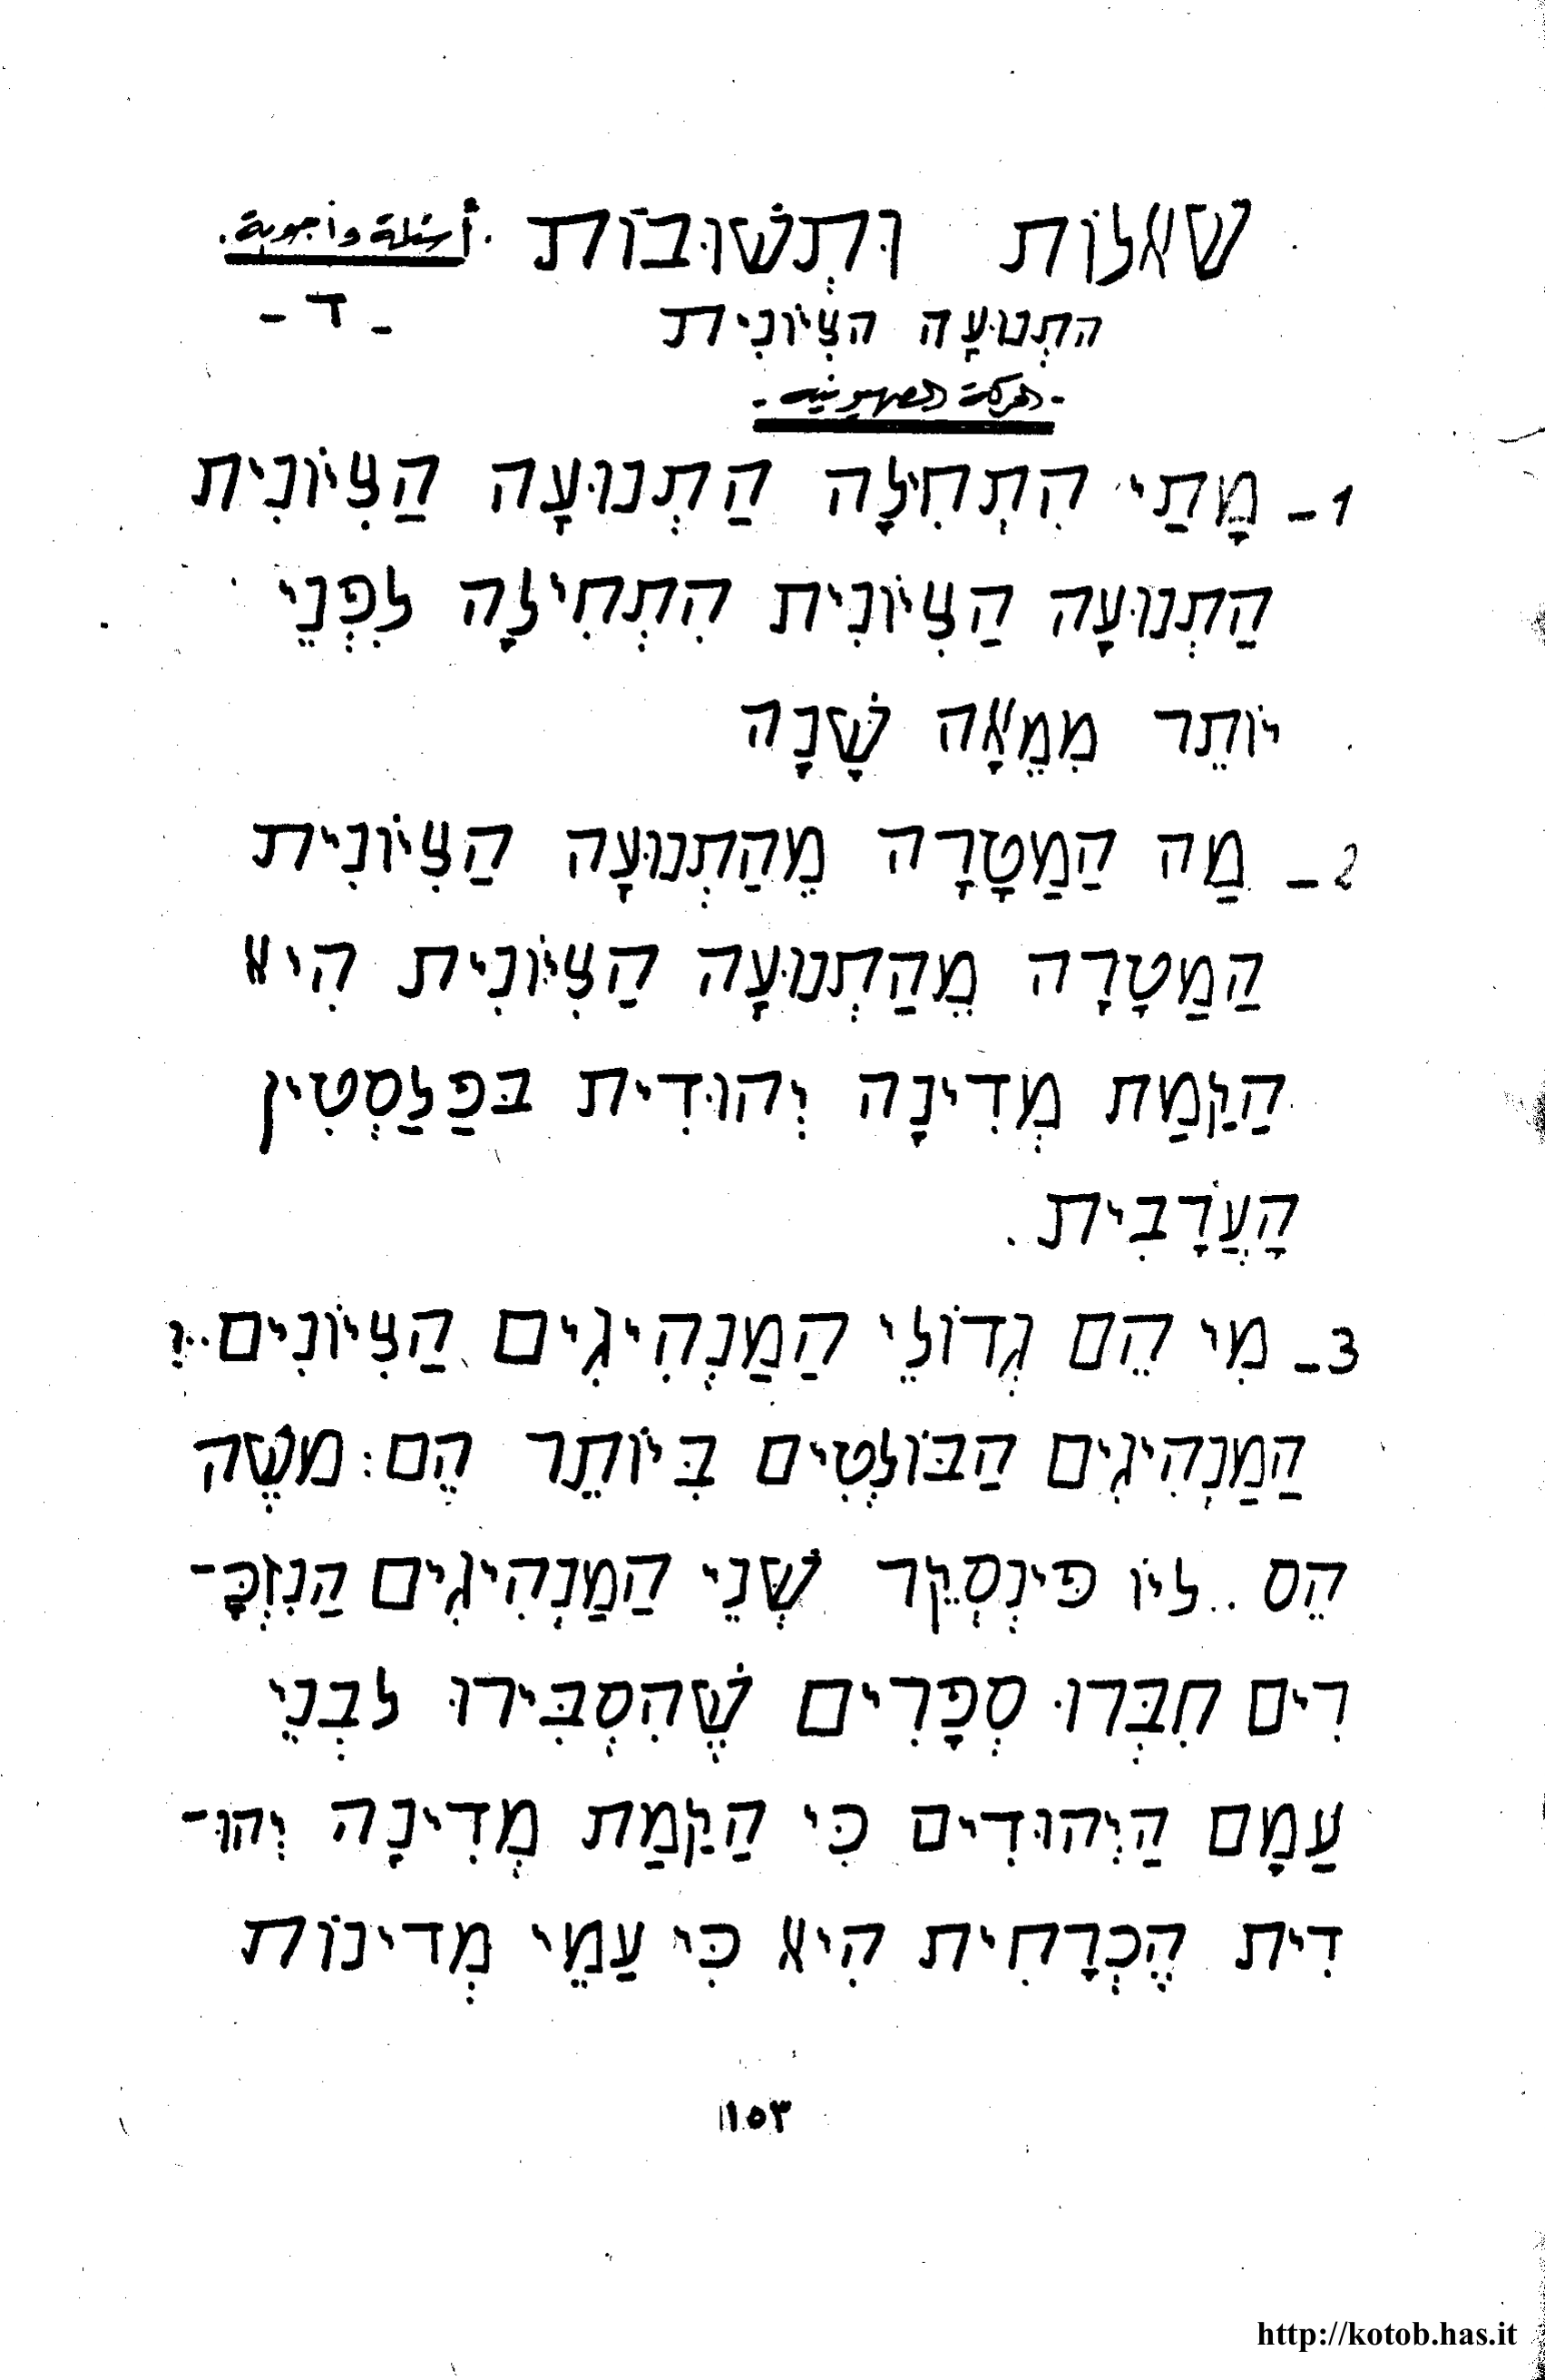 שאלות וּתְשׁוּבות . أسئلة وأجوبة .
- ד -
התְנוּעָה הצִיוֹנִית
- الحركة الصهيونية -
1- מָתַי הִתְחִילָה הַתְנוּעָה הַצִיוֹנִית
הַתְנוּעָה הַצִיוֹנִית הִתְחִילָה לִפְנֵי
יוֹתֵר מִמֵאָה שָׁנָה
2- מַה הַמַטָרָה מֵהַתְנוּעָה הַצִיוֹנִית
הַמַטָרָה מֵהַתְנוּעָה הַצִיוֹנִית הִיא
הַקַמַת מְדִינָה יְהוּדִית בּפַלַסְטִין
הָעֲרָבִית .
3- מִי הֵם גְדוֹלֵי הַמַנְהִיגִים הַצִיוֹנִים..
הַמַנְהִיגִים הַבּוֹלְטִים בְּיוֹתֵר הֶם: משֶׁה
הֵס .. ליוֹ פִּינְסְקֵר שְׁנֵי הַמַנְהִיגִים הַנִזְכָּ-
רִים חִבְּרוּ סְפָרִים שֶׁהִסְבִּירוּ לבְנֵי
עַמָם הַיְהוּדִים כִּי הַקַמַת מְדִינָה יְהוּ-
דִית הֶכְרָחִית הִיא כִּי עַמֵי מְדינוֹת
١٥٣
http://kotob.has.it